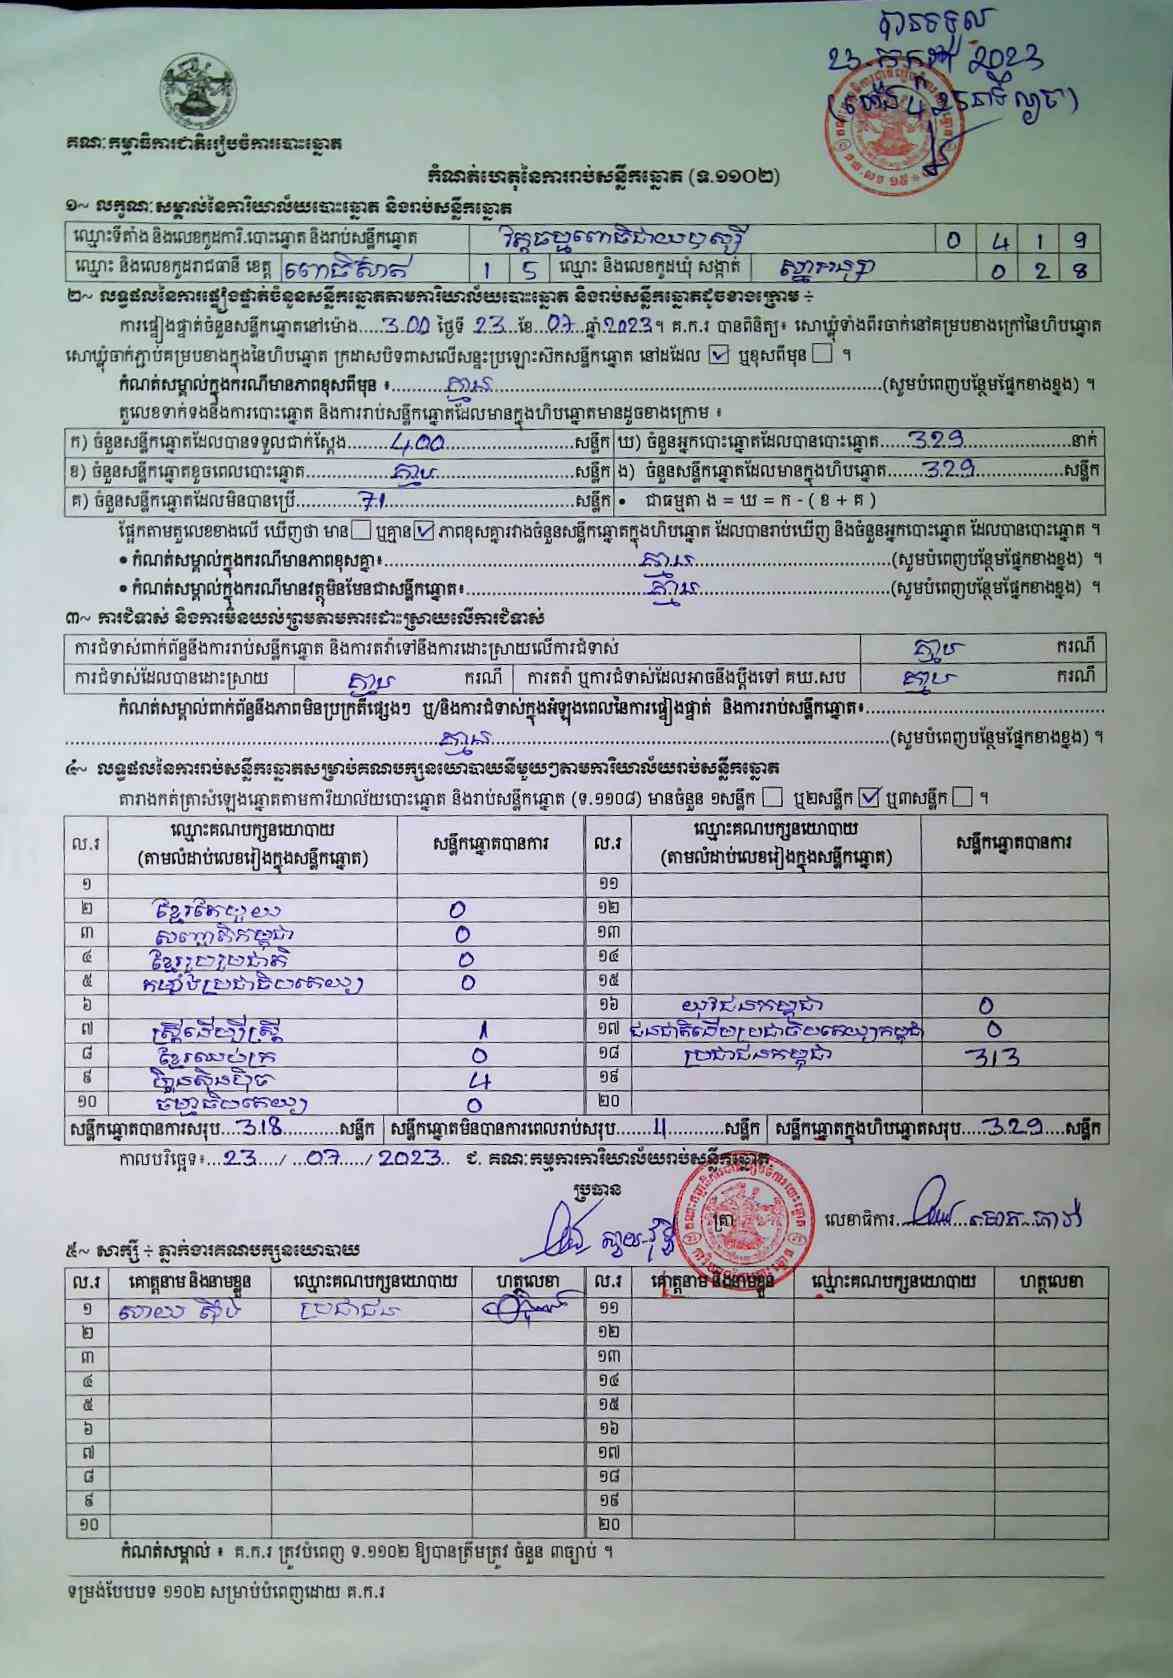 បានទទួល
23 កក្កដា 2023
គណៈកម្មាធិការជាតិរៀបចំការបោះឆ្នោត
កំណត់ហេតុនៃការរាប់សន្លឹកឆ្នោត (ទ.១១០២)
១~ លក្ខណៈសម្គាល់នៃការិយាល័យបោះឆ្នោត និងរាប់សន្លឹកឆ្នោត
ឈ្មោះទីតាំង និងលេខកូដការិ.បោះឆ្នោត និងរាប់សន្លឹកឆ្នោត 0 4 1 9
ឈ្មោះ និងលេខកូដរាជធានី ខេត្ត ពោធិ៍សាត់ 1 5 ឈ្មោះ និងលេខកូដឃុំ សង្កាត់ 0 2 8
២~ លទ្ធផលនៃការផ្ទៀងផ្ទាត់ចំនួនសន្លឹកឆ្នោតតាមការិយាល័យបោះឆ្នោត និងរាប់សន្លឹកឆ្នោតដូចខាងក្រោម ÷
ការផ្ទៀងផ្ទាត់ចំនួនសន្លឹកឆ្នោតនៅម៉ោង....3.00 ថ្ងៃទី 23...ខែ...07...ឆ្នាំ.2023។ គ.ក.រ បានពិនិត្យ៖ សោឃ្លុំទាំងពីរចាក់នៅគម្របខាងក្រៅនៃហិបឆ្នោត
សោឃ្លុំចាក់ភ្ជាប់គម្របខាងក្នុងនៃហិបឆ្នោត ក្រដាសបិទពាសលើសន្ទះប្រឡោះស៊កសន្លឹកឆ្នោត នៅដដែល ☑ ឬខុសពីមុន ☐ ។
កំណត់សម្គាល់ក្នុងករណីមានភាពខុសពីមុន ៖.....គ្មាន.....(សូមបំពេញបន្ថែមផ្នែកខាងខ្នង) ។
តួលេខទាក់ទងនឹងការបោះឆ្នោត និងការរាប់សន្លឹកឆ្នោតដែលមានក្នុងហិបឆ្នោតមានដូចខាងក្រោម ៖
ក) ចំនួនសន្លឹកឆ្នោតដែលបានទទួលជាក់ស្តែង.....400.....សន្លឹក ឃ) ចំនួនអ្នកបោះឆ្នោតដែលបានបោះឆ្នោត.....329.....នាក់
ខ) ចំនួនសន្លឹកឆ្នោតខូចពេលបោះឆ្នោត.....គ្មាន.....សន្លឹក ង) ចំនួនសន្លឹកឆ្នោតដែលមានក្នុងហិបឆ្នោត.....329.....សន្លឹក
គ) ចំនួនសន្លឹកឆ្នោតដែលមិនបានប្រើ.....71.....សន្លឹក • ជាធម្មតា ង = ឃ = ក - ( ខ + គ )
ផ្អែកតាមតួលេខខាងលើ ឃើញថា មាន☐ ឬគ្មាន☑ ភាពខុសគ្នារវាងចំនួនសន្លឹកឆ្នោតក្នុងហិបឆ្នោត ដែលបានរាប់ឃើញ និងចំនួនអ្នកបោះឆ្នោត ដែលបានបោះឆ្នោត ។
• កំណត់សម្គាល់ក្នុងករណីមានភាពខុសគ្នា៖.....គ្មាន.....(សូមបំពេញបន្ថែមផ្នែកខាងខ្នង) ។
• កំណត់សម្គាល់ក្នុងករណីមានវត្ថុមិនមែនជាសន្លឹកឆ្នោត៖.....គ្មាន.....(សូមបំពេញបន្ថែមផ្នែកខាងខ្នង) ។
៣~ ការជំទាស់ និងការមិនយល់ព្រមតាមការដោះស្រាយលើការជំទាស់
ការជំទាស់ពាក់ព័ន្ធនឹងការរាប់សន្លឹកឆ្នោត និងការតវ៉ាទៅនឹងការដោះស្រាយលើការជំទាស់ គ្មាន ករណី
ការជំទាស់ដែលបានដោះស្រាយ គ្មាន ករណី ការតវ៉ា ឬការជំទាស់ដែលអាចនឹងប្តឹងទៅ គឃ.សប គ្មាន ករណី
កំណត់សម្គាល់ពាក់ព័ន្ធនឹងភាពមិនប្រក្រតីផ្សេងៗ ឬ/និងការជំទាស់ក្នុងអំឡុងពេលនៃការផ្ទៀងផ្ទាត់ និងការរាប់សន្លឹកឆ្នោត៖.....
.....គ្មាន.....(សូមបំពេញបន្ថែមផ្នែកខាងខ្នង) ។
៤~ លទ្ធផលនៃការរាប់សន្លឹកឆ្នោតសម្រាប់គណបក្សនយោបាយនីមួយៗតាមការិយាល័យរាប់សន្លឹកឆ្នោត
តារាងកត់ត្រាសំឡេងឆ្នោតតាមការិយាល័យបោះឆ្នោត និងរាប់សន្លឹកឆ្នោត (ទ.១១០៨) មានចំនួន ១សន្លឹក ☐ ឬ២សន្លឹក ☑ ឬ៣សន្លឹក ☐ ។
ល.រ ឈ្មោះគណបក្សនយោបាយ (តាមលំដាប់លេខរៀងក្នុងសន្លឹកឆ្នោត) សន្លឹកឆ្នោតបានការ ល.រ ឈ្មោះគណបក្សនយោបាយ (តាមលំដាប់លេខរៀងក្នុងសន្លឹកឆ្នោត) សន្លឹកឆ្នោតបានការ
១ ១១
២ ខ្មែរតែមួយ 0 ១២
៣ សញ្ជាតិកម្ពុជា 0 ១៣
៤ ខ្មែររួបរួមជាតិ 0 ១៤
៥ កម្លាំងប្រជាធិបតេយ្យ 0 ១៥
៦ ១៦ យុវជនកម្ពុជា 0
៧ ស្ត្រីដើម្បីស្ត្រី 1 ១៧ ជនជាតិដើមប្រជាធិបតេយ្យកម្ពុជា 0
៨ ខ្មែរឈប់ក្រ 0 ១៨ ប្រជាជនកម្ពុជា 313
៩ ហ៊្វុនស៊ិនប៉ិច 4 ១៩
១០ ធម្មាធិបតេយ្យ 0 ២០
សន្លឹកឆ្នោតបានការសរុប...318.....សន្លឹក សន្លឹកឆ្នោតមិនបានការពេលរាប់សរុប.....11.....សន្លឹក សន្លឹកឆ្នោតក្នុងហិបឆ្នោតសរុប...329...សន្លឹក
កាលបរិច្ឆេទ៖...23..../...07...../ 2023.. ជ. គណៈកម្មការការិយាល័យរាប់សន្លឹកឆ្នោត
ប្រធាន
ត្រា លេខាធិការ
៥~ សាក្សី ÷ ភ្នាក់ងារគណបក្សនយោបាយ
ល.រ គោត្តនាម និងនាមខ្លួន ឈ្មោះគណបក្សនយោបាយ ហត្ថលេខា ល.រ គោត្តនាម និងនាមខ្លួន ឈ្មោះគណបក្សនយោបាយ ហត្ថលេខា
១ ប្រជាជន ១១
២ ១២
៣ ១៣
៤ ១៤
៥ ១៥
៦ ១៦
៧ ១៧
៨ ១៨
៩ ១៩
១០ ២០
កំណត់សម្គាល់ ៖ គ.ក.រ ត្រូវបំពេញ ទ.១១០២ ឱ្យបានត្រឹមត្រូវ ចំនួន ៣ច្បាប់ ។
ទម្រង់បែបបទ ១១០២ សម្រាប់បំពេញដោយ គ.ក.រ